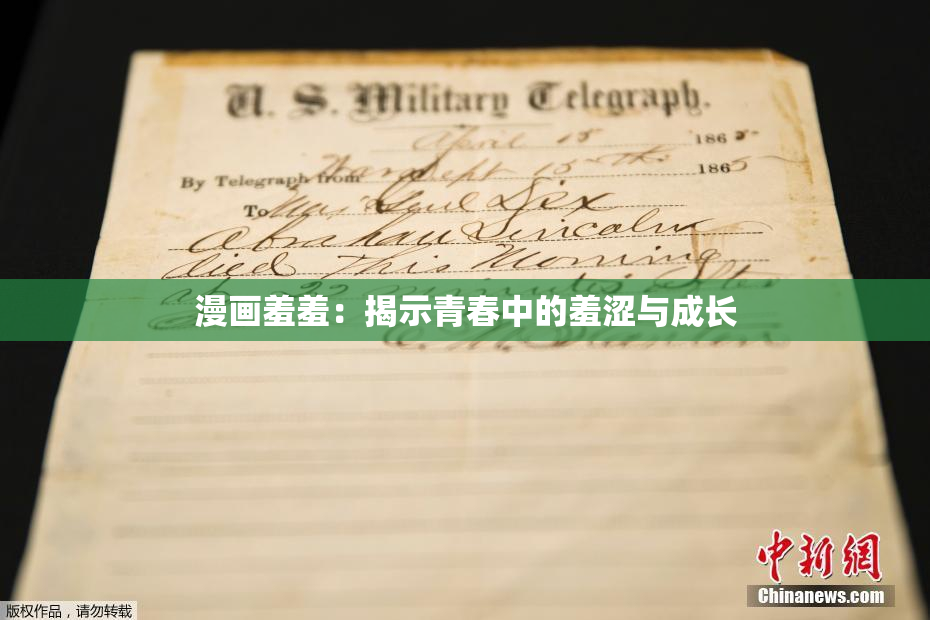 U. S. Military Telegraph.
April 15 1865
By Telegraph from War Dept 15th 1865
To Maj Genl Dix
Abraham Lincoln
died This Morning
at 22 minutes after
漫画羞羞：揭示青春中的羞涩与成长
E. M. Stanton
中新网
Chinanews.com
版权作品，请勿转载